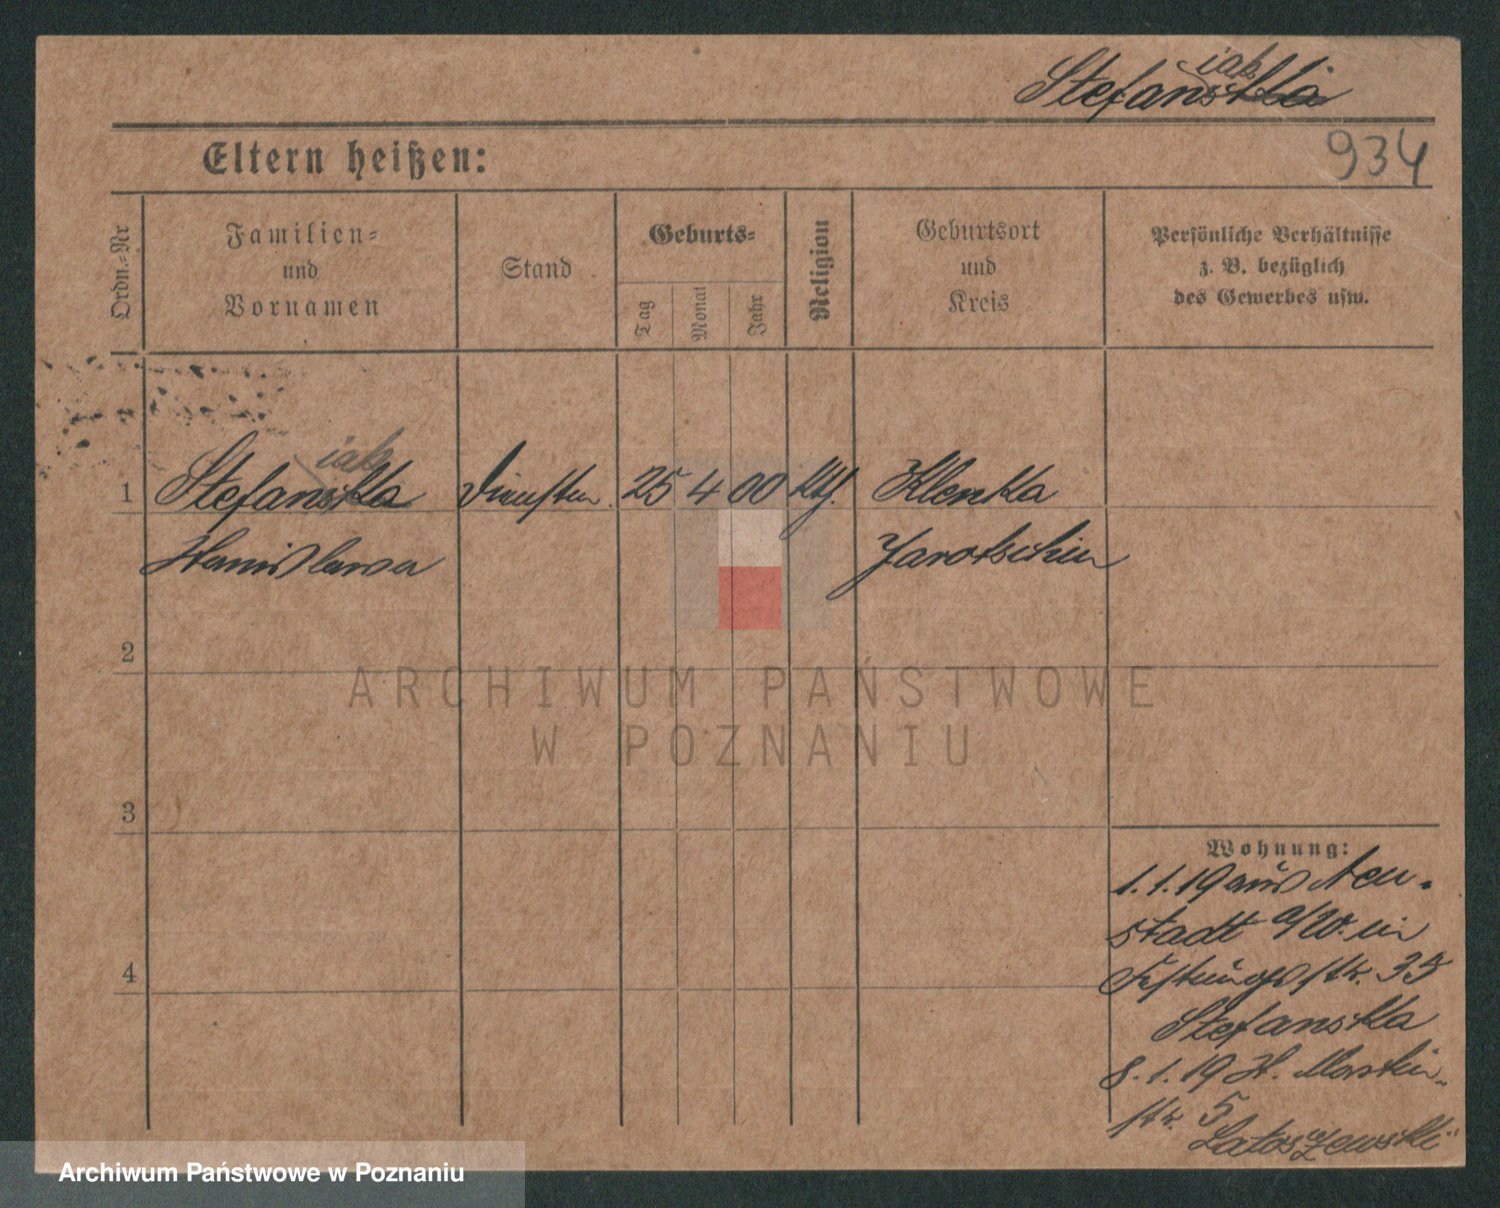 Stefańska
iak
934
Eltern heißen:
Ordn.-Nr
Familien-
und
Vornamen
Stand
Geburts-
Tag
Monat
Jahr
Religion
Geburtsort
und
Kreis
Persönliche Verhältnisse
z. B. bezüglich
des Gewerbes usw.
iak
1 Stefanska 25 4 00 Kth. Klenka
Stanislawa Jarotschin
2
3
4
ARCHIWUM PAŃSTWOWE
W POZNANIU
Wohnung:
1.1.19 aus Neu-
stadt a/W. in
Festungsstr. 35
Stefanska
8.1.19 St. Martin-
str. 5
Latoszewski
Archiwum Państwowe w Poznaniu